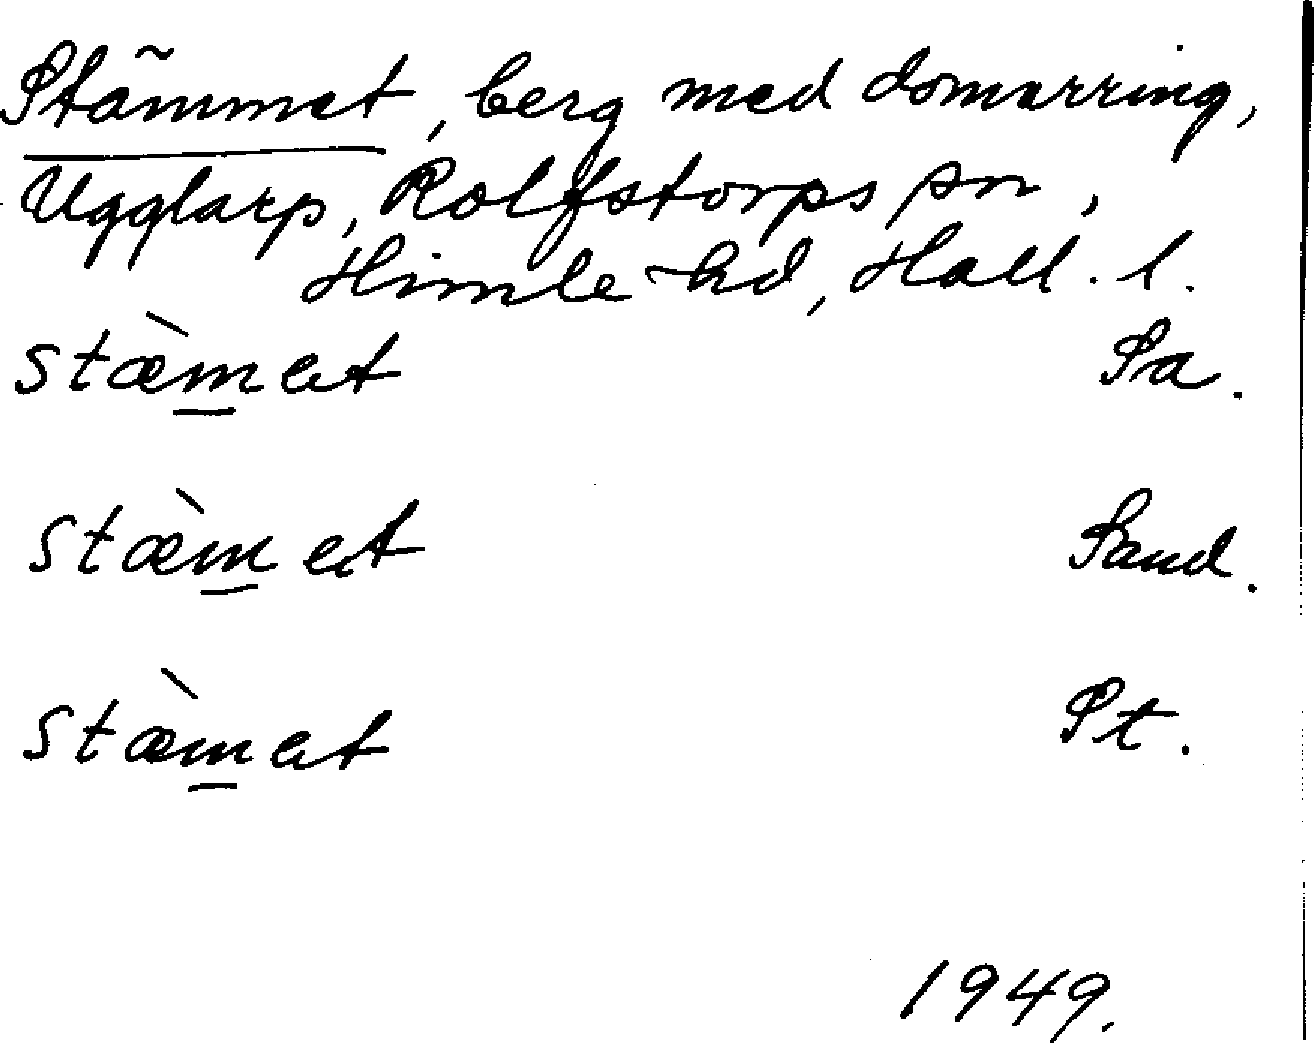 Stämmet, berg med domarring,
Ugglarp, Rolfstorps sn,
Himle hd, Hall. l.
stæ̀m̲et Sa.
stæ̀m̲et Sand.
stæ̀m̲et St.
1949.